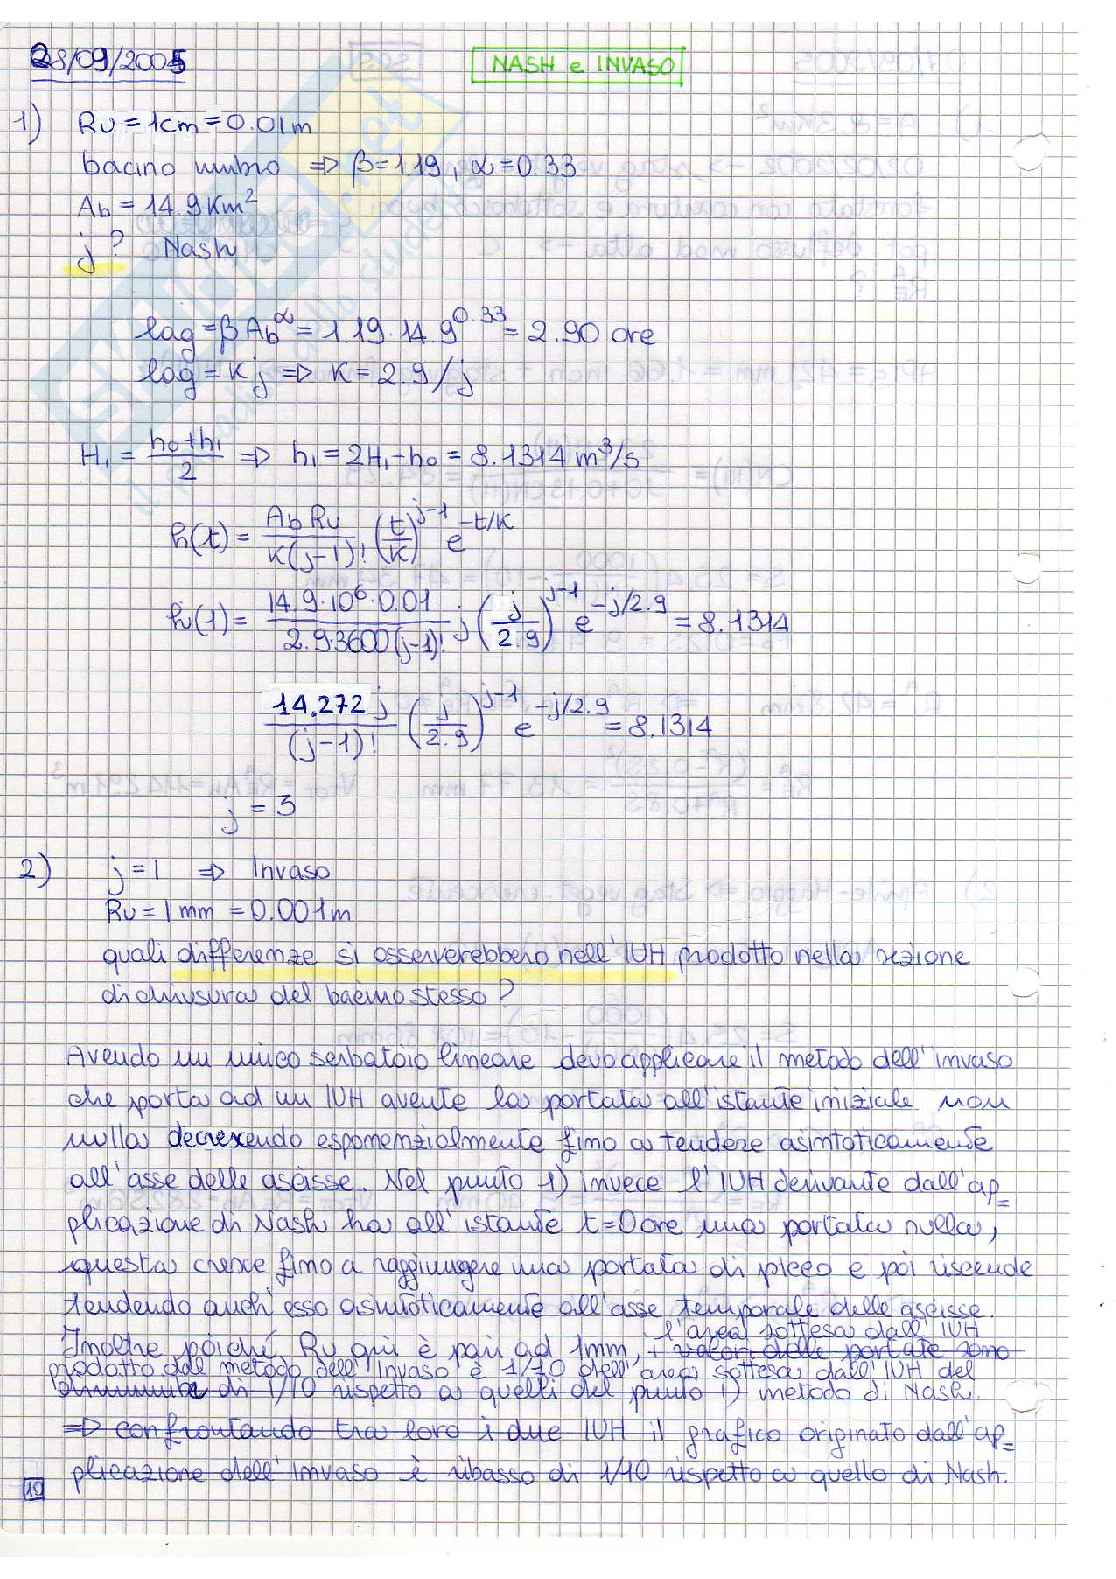 28/09/2005
NASH e INVASO
1) Ru = 1cm = 0.01m
bacino umbro => β = 1.19, α = 0.33
Ab = 14.9 Km²
j? Nash
lag = β Ab^α = 1.19·14.9^0.33 = 2.90 ore
lag = K j => K = 2.9/j
H₁ = (h₀+h₁)/2 => h₁ = 2H₁-h₀ = 8.1314 m³/s
h(t) = Ab Ru / K(j-1)! (t/K)^j-1 e^-t/K
h(1) = 14.9·10⁶·0.01 / 2.9·3600(j-1)! j (j/2.9)^j-1 e^-j/2.9 = 8.1314
14.272 j / (j-1)! (j/2.9)^j-1 e^-j/2.9 = 8.1314
j = 3
2) j = 1 => Invaso
Ru = 1 mm = 0.001m
quali differenze si osserverebbero nell'IUH prodotto nella sezione
di chiusura del bacino stesso?
Avendo un unico serbatoio lineare devo applicare il metodo dell'invaso
che porta ad un IUH avente la portata all'istante iniziale non
nulla decrescendo esponenzialmente fino a tendere asintoticamente
all'asse delle ascisse. Nel punto 1) invece l'IUH derivante dall'ap=
plicazione di Nash ha all'istante t=0 ore una portata nulla,
questa cresce fino a raggiungere una portata di picco e poi riscende
tendendo anch'esso asintoticamente all'asse temporale delle ascisse.
l'area sottesa dall'IUH
Inoltre poiché Ru qui è pari ad 1mm, i valori delle portate sono
prodotto dal metodo dell'Invaso è 1/10 dell'area sottesa dall'IUH del
di 1/10 rispetto a quelli del punto 1) metodo di Nash.
=> confrontando tra loro i due IUH il grafico originato dall'ap=
plicazione dell'invaso è ribasso di 1/10 rispetto a quello di Nash.
10